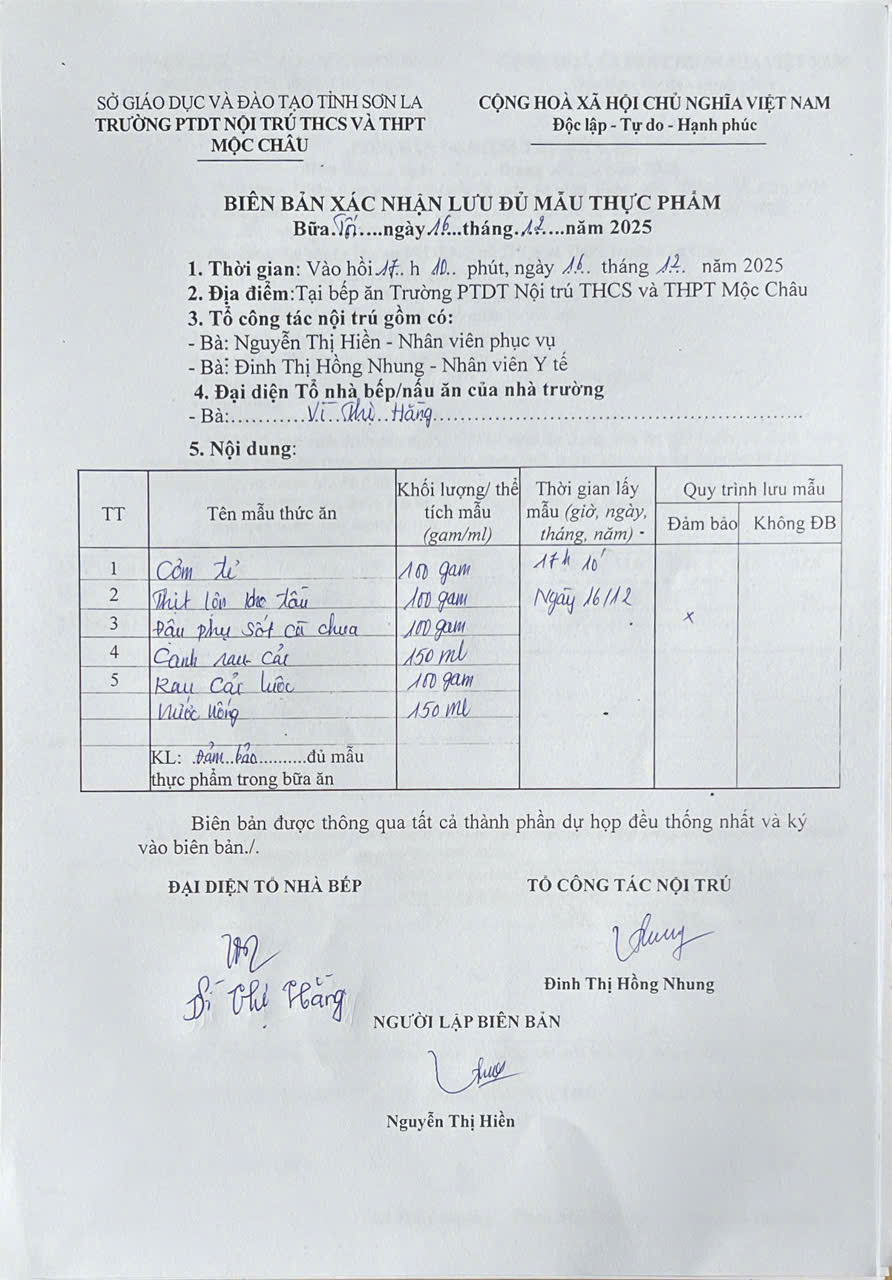 SỞ GIÁO DỤC VÀ ĐÀO TẠO TỈNH SƠN LA
TRƯỜNG PTDT NỘI TRÚ THCS VÀ THPT
MỘC CHÂU
CỘNG HOÀ XÃ HỘI CHỦ NGHĨA VIỆT NAM
Độc lập - Tự do - Hạnh phúc
BIÊN BẢN XÁC NHẬN LƯU ĐỦ MẪU THỰC PHẨM
Bữa.Tối....ngày 16...tháng.12....năm 2025
1. Thời gian: Vào hồi 17. h 10.. phút, ngày 16. tháng 12. năm 2025
2. Địa điểm:Tại bếp ăn Trường PTDT Nội trú THCS và THPT Mộc Châu
3. Tổ công tác nội trú gồm có:
- Bà: Nguyễn Thị Hiền - Nhân viên phục vụ
- Bà: Đinh Thị Hồng Nhung - Nhân viên Y tế
4. Đại diện Tổ nhà bếp/nấu ăn của nhà trường
- Bà:...........Vì Thị Hằng......................................................
5. Nội dung:
TT Tên mẫu thức ăn Khối lượng/ thể tích mẫu (gam/ml) Thời gian lấy mẫu (giờ, ngày, tháng, năm) Quy trình lưu mẫu
Đảm bảo Không ĐB
1 Cơm tẻ 100 gam 17h 10'
2 Thịt lợn kho tầu 100 gam Ngày 16/12
3 Đậu phụ sốt cà chua 100 gam x
4 Canh rau cải 150 ml
5 Rau cải luộc 100 gam
Nước uống 150 ml
KL: .Đảm bảo..........đủ mẫu
thực phẩm trong bữa ăn
Biên bản được thông qua tất cả thành phần dự họp đều thống nhất và ký
vào biên bản./.
ĐẠI DIỆN TỔ NHÀ BẾP
TỔ CÔNG TÁC NỘI TRÚ
Nhung
Vì Thị Hằng
Đinh Thị Hồng Nhung
NGƯỜI LẬP BIÊN BẢN
Nguyễn Thị Hiền